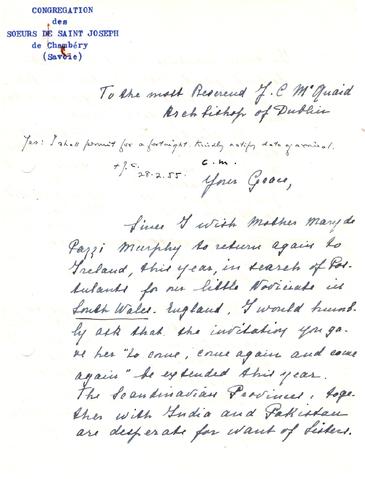 CONGREGATION
des
SOEURS DE SAINT JOSEPH
de Chambéry
(Savoie)
To the most Reverend J. C McQuaid
Archbishop of Dublin
Yes: I shall permit for a fortnight. Kindly notify date of arrival.
+ J. C.
28-2.55.
c.m.
Your Grace,
Since I wish Mother Mary de
Pazzi Murphy to return again to
Ireland, this year, in search of Pos-
tulants for our little Novitiate in
South Wales. England, I would humb-
ly ask that the invitation you ga-
ve her "to come, come again and come
again" be extended this year.
The Scandinavian Provinces, toge-
ther with India and Pakistan
are desperate for want of Sisters.